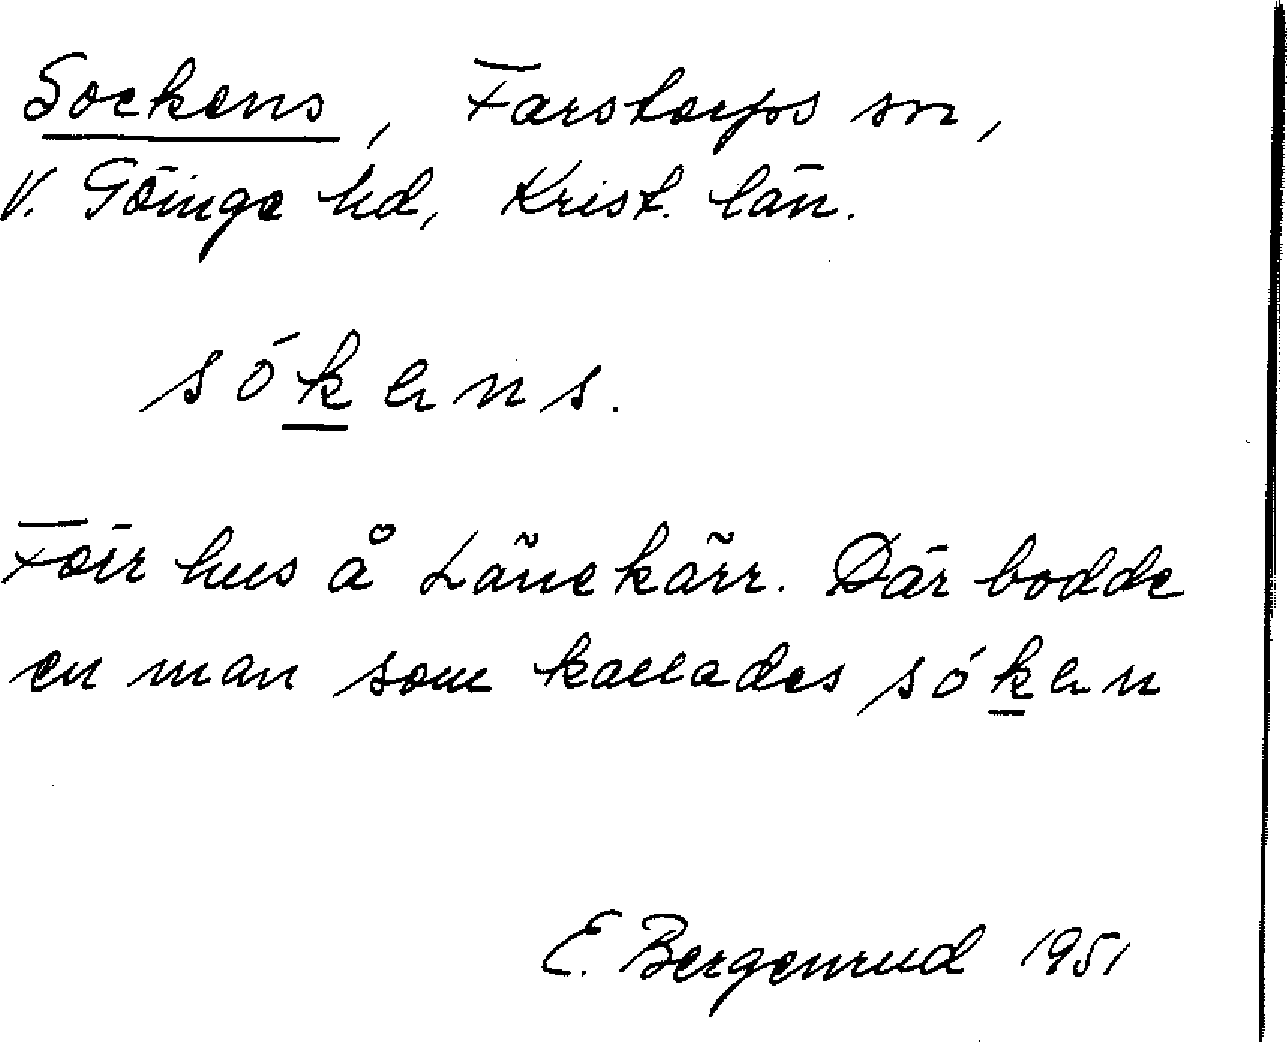 Sockens, Farstorps sn,
V. Göinge hd, Krist. län.
sókəns.
Förr hus å Länekärr. Där bodde
en man som kallades sókən
E. Bergenrud 1951